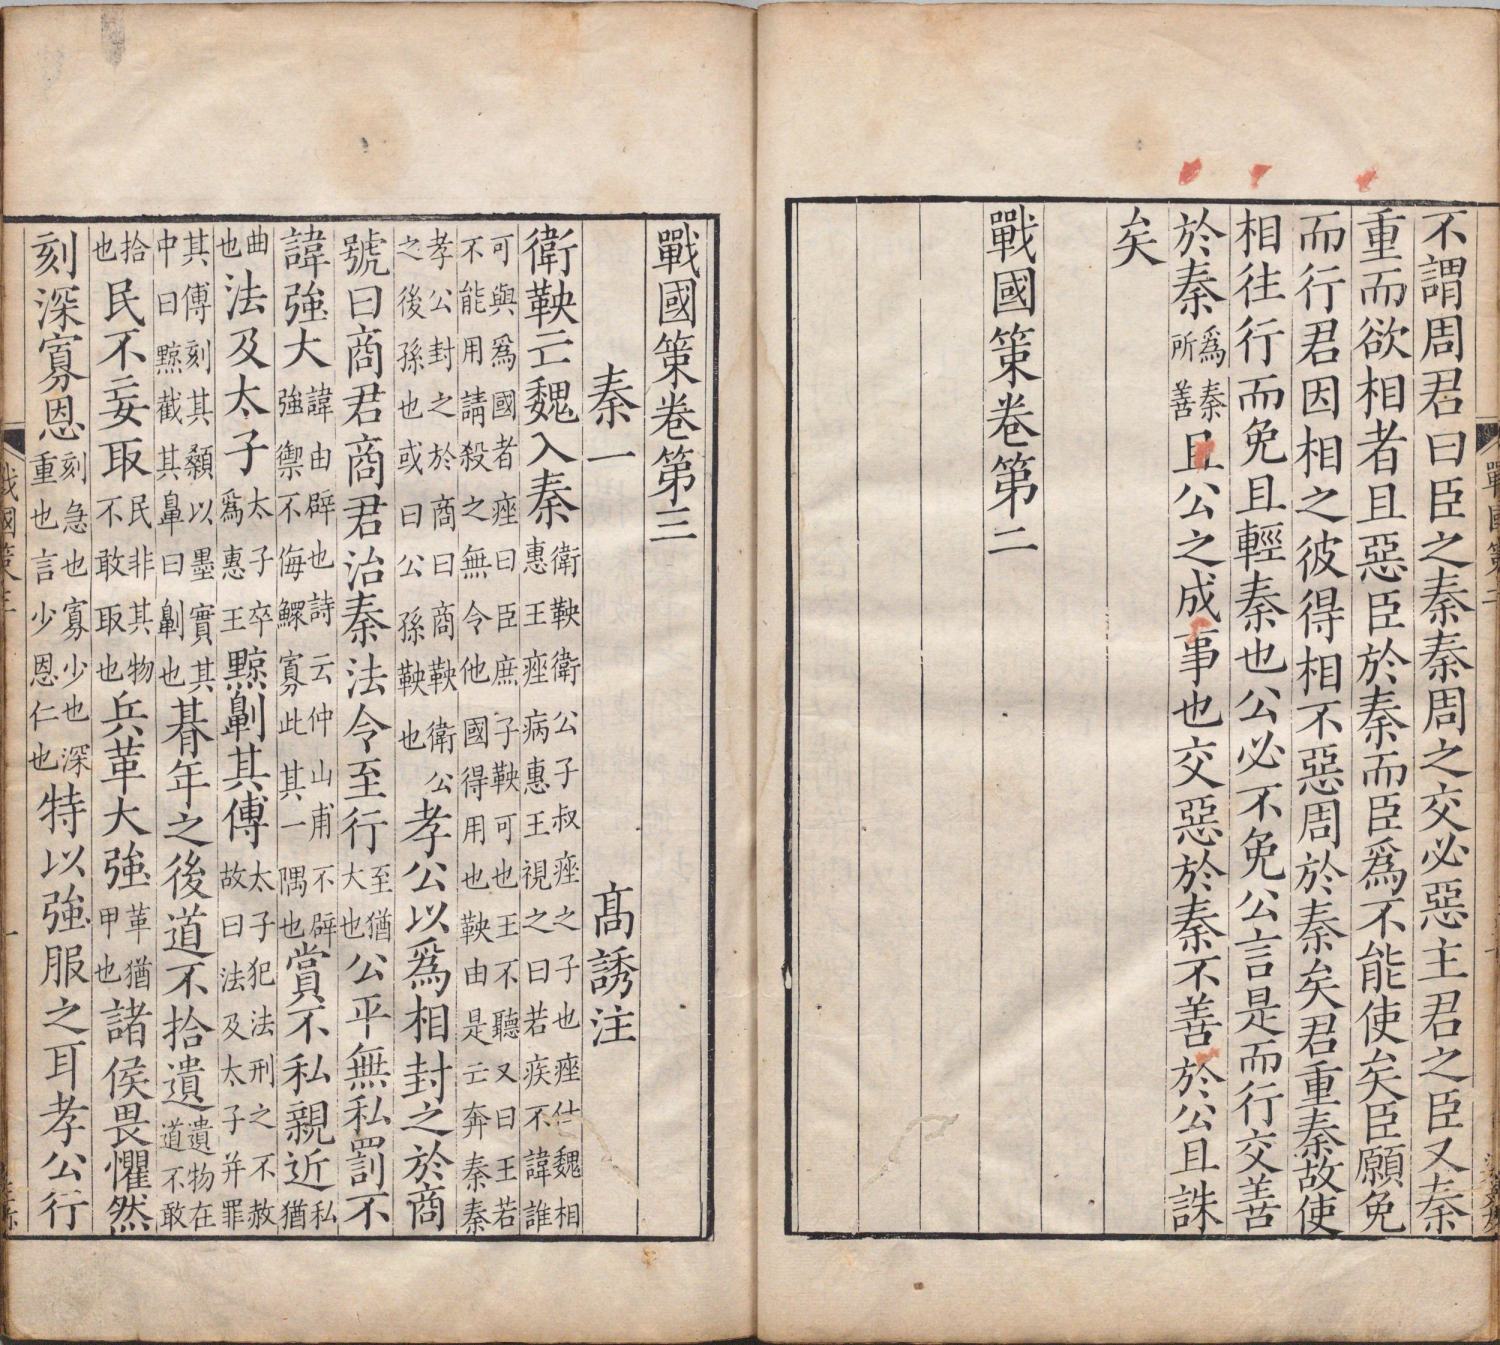 戰國策二
不謂周君曰臣之秦秦周之交必惡主君之臣又秦
重而欲相者且惡臣於秦而臣爲不能使矣臣願免
而行君因相之彼得相不惡周於秦矣君重秦故使
相往行而免且輕秦也公必不免公言是而行交善
於秦爲秦所善且公之成事也交惡於秦不善於公且誅
矣
戰國策卷第二
戰國策卷第三
秦一 高誘注
衛鞅亡魏入秦衛鞅衛公子叔痤之子也痤仕魏相惠王痤病惠王視之曰若疾不諱誰
可與爲國者痤曰臣庶子鞅可也王不聽又曰王若不能用請殺之無令他國得用也鞅由是亡奔秦秦
孝公封之於商曰商鞅衛公之後孫也或曰公孫鞅也孝公以爲相封之於商
號曰商君商君治秦法令至行至猶大也公平無私罰不
諱強大諱由辟也詩云仲山甫不辟強禦不侮鰥寡此其一隅也賞不私親近私猶
曲也法及太子太子卒爲惠王黥劓其傅太子犯法刑之不赦故曰法及太子并罪
其傅刻其顙以墨實其中曰黥截其鼻曰劓也朞年之後道不拾遺遺物在道不敢
拾也民不妄取民非其物不敢取也兵革大強革猶甲也諸侯畏懼然
刻深寡恩刻急也寡少也深重也言少恩仁也特以強服之耳孝公行
戰國策三 一